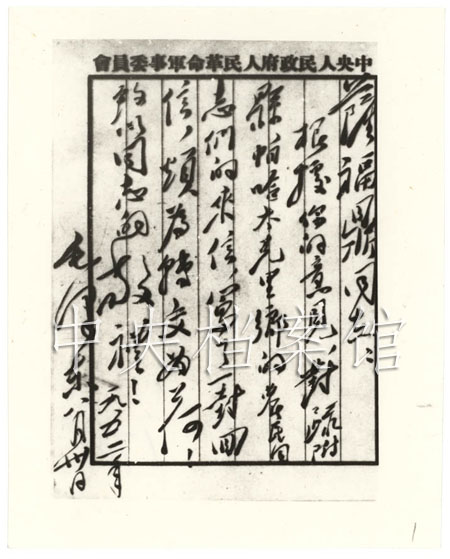 中央人民政府人民革命軍事委員會
賽福鼎同志：
根據你的意見，對疏附
縣帕哈太克里鄉的農民同
志們的來信，寫了一封回
信，煩為轉交為荷！
致以同志的敬禮！
毛澤東
一九五二年
八月卅日
中央档案馆
1